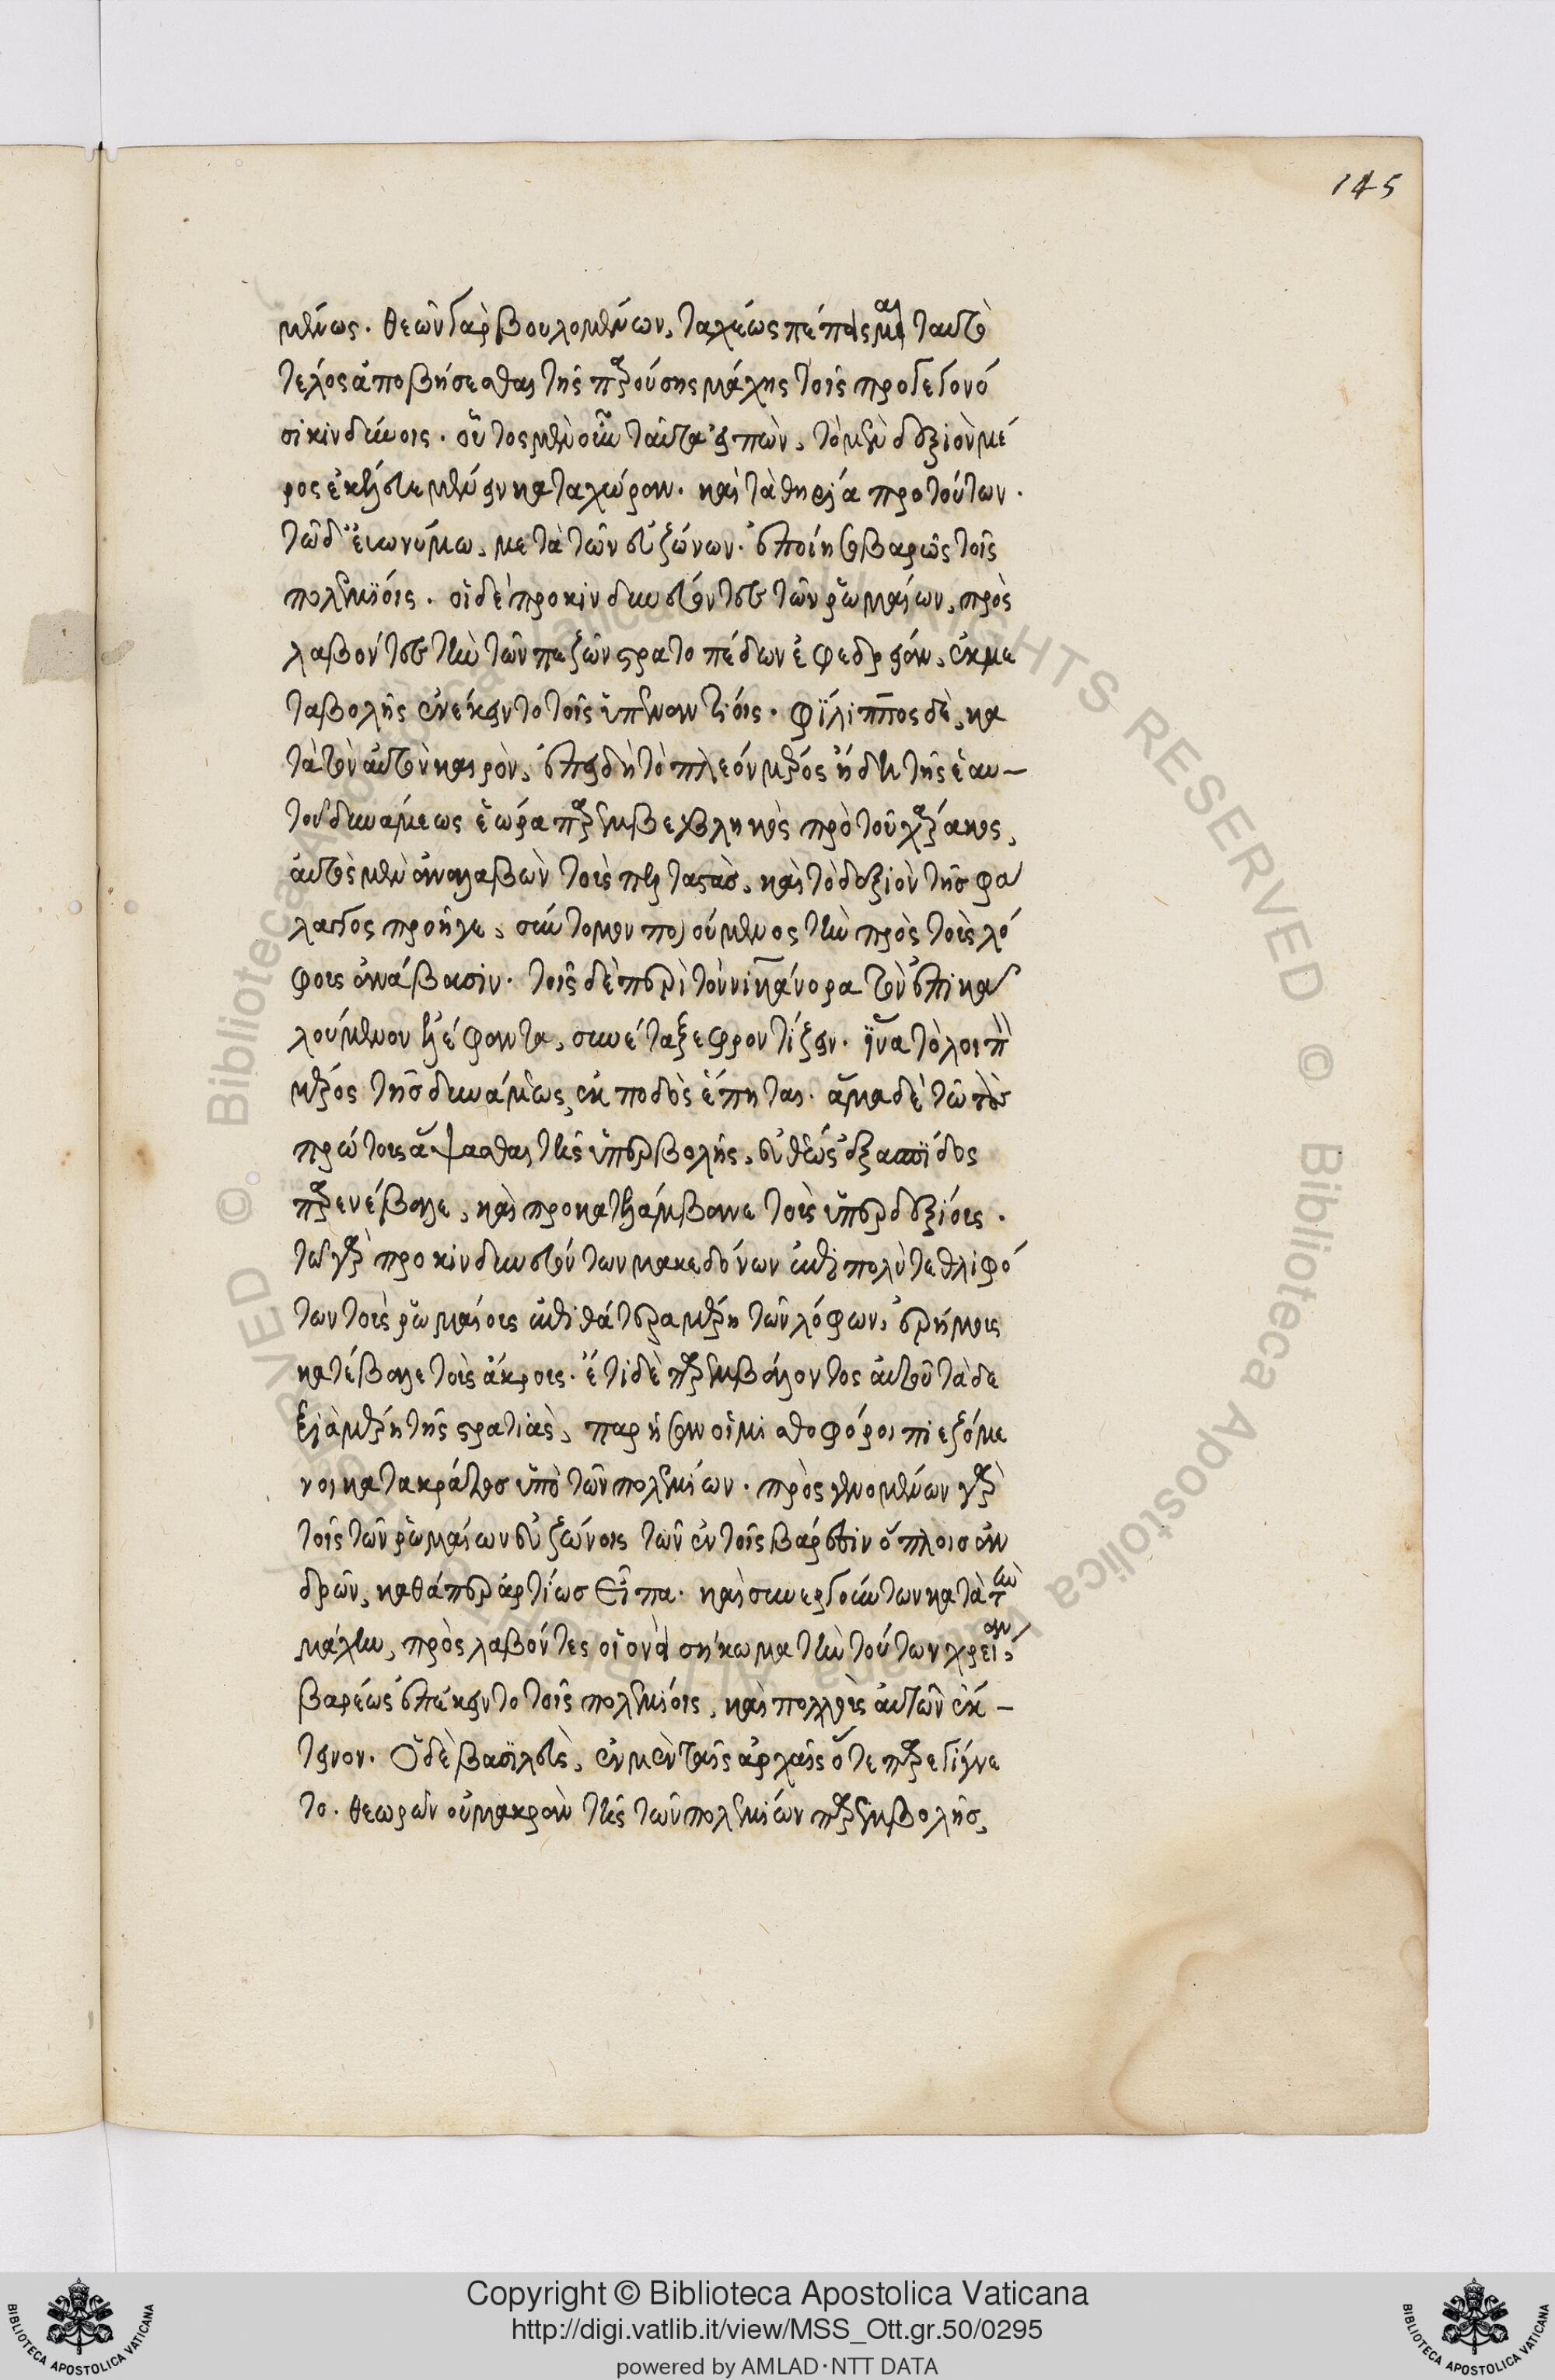 145
μένως. θεῶν γὰρ βουλομένων, ταχέως πέπεισμαι ταυτὸ
τέλος ἀποβήσεσθαι τῆς παρούσης μάχης τοῖς προγεγονό
σι κινδύνοις. οὗτος μὲν οὖν ταῦτα εἰπὼν, τὸ μὲν δεξιὸν μέ
ρος ἐκέλευε μένειν κατα χώραν. καὶ τὰ θηρία προ τούτων.
τῶ δ' εὐωνύμω, μετὰ τῶν εὐζώνων. ἐποίει σοβαρῶς τοῖς
πολεμίοις. οἱ δὲ προκινδυνεύοντες τῶν ῥωμαίων, προς
λαβόντες τὴν τῶν πεζῶν στρατοπέδων ἐφεδρείαν, ἐκ με
ταβολῆς ἐνέκειντο τοῖς ὑπεναντίοις. φίλιππος δὲ, κα
τὰ τὸν αὐτὸν καιρὸν, ἐπειδὴ τὸ πλεόν μέρος ἤδη τῆς ἑαυ-
τοῦ δυνάμεως ἑώρα παρεμβεβληκὸς πρὸ τοῦ χάρακος,
αὐτὸς μὲν ἀναλαβὼν τοὺς πελταστὰς, καὶ τὸ δεξιὸν τῆς φα
λαγγος προῆγε, σύντομον ποιούμενος τὴν πρὸς τοὺς λό
φους ἀνάβασιν. τοῖς δὲ περὶ τὸν νικάνορα τὸν ἐπικα
λούμενον ἐλέφαντα, συνέταξε φροντίζειν. ἵνα τὸ λοιπὸν
μέρος τῆς δυνάμεως, ἐκ ποδὸς ἕπηται. ἅμα δὲ τῶ τοὺς
πρώτους ἅψασθαι τῆς ὑπερβολῆς, εὐθέως ἐξ ἀσπίδος
παρενέβαλε, καὶ προκατελάμβανε τοὺς ὑπερδεξίους.
τῶν γὰρ προκινδυνευόντων μακεδόνων ἐπὶ πολὺ τεθλιφό
των τοὺς ῥωμαίους ἐπὶ θάτερα μέρη τῶν λόφων, ἐρήμους
κατέβαλε τοὺς ἄκρους. ἔτι δὲ παρεμβάλοντος αὐτοῦ τὰ δε
ξιὰ μέρη τῆς στρατιᾶς, παρῆσαν οἱ μισθοφόροι πιεζόμε
νοι κατα κράτος ὑπὸ τῶν πολεμίων. προς γενομένων γὰρ
τοῖς τῶν ῥωμαίων εὐζώνοις τῶν ἐν τοῖς βαρέσιν ὅπλοις ἀν
δρῶν, καθάπερ ἀρτίως εἶπα. καὶ συνεργούντων κατὰ τὴν
μάχην, προς λαβόντες οἱονεὶ σήκωμα τὴν τούτων χρείαν,
βαρέως ἐπέκειντο τοῖς πολεμίοις, καὶ πολλοὺς αὐτῶν ἔκ-
τεινον. Ὁ δὲ βασιλεὺς, ἐν μὲν ταῖς ἀρχαῖς ὅτε παρεγίγνε
το. θεωρῶν οὐ μακρὰν τῆς τῶν πολεμίων παρεμβολῆς,
Copyright © Biblioteca Apostolica Vaticana
http://digi.vatlib.it/view/MSS_Ott.gr.50/0295
powered by AMLAD·NTT DATA